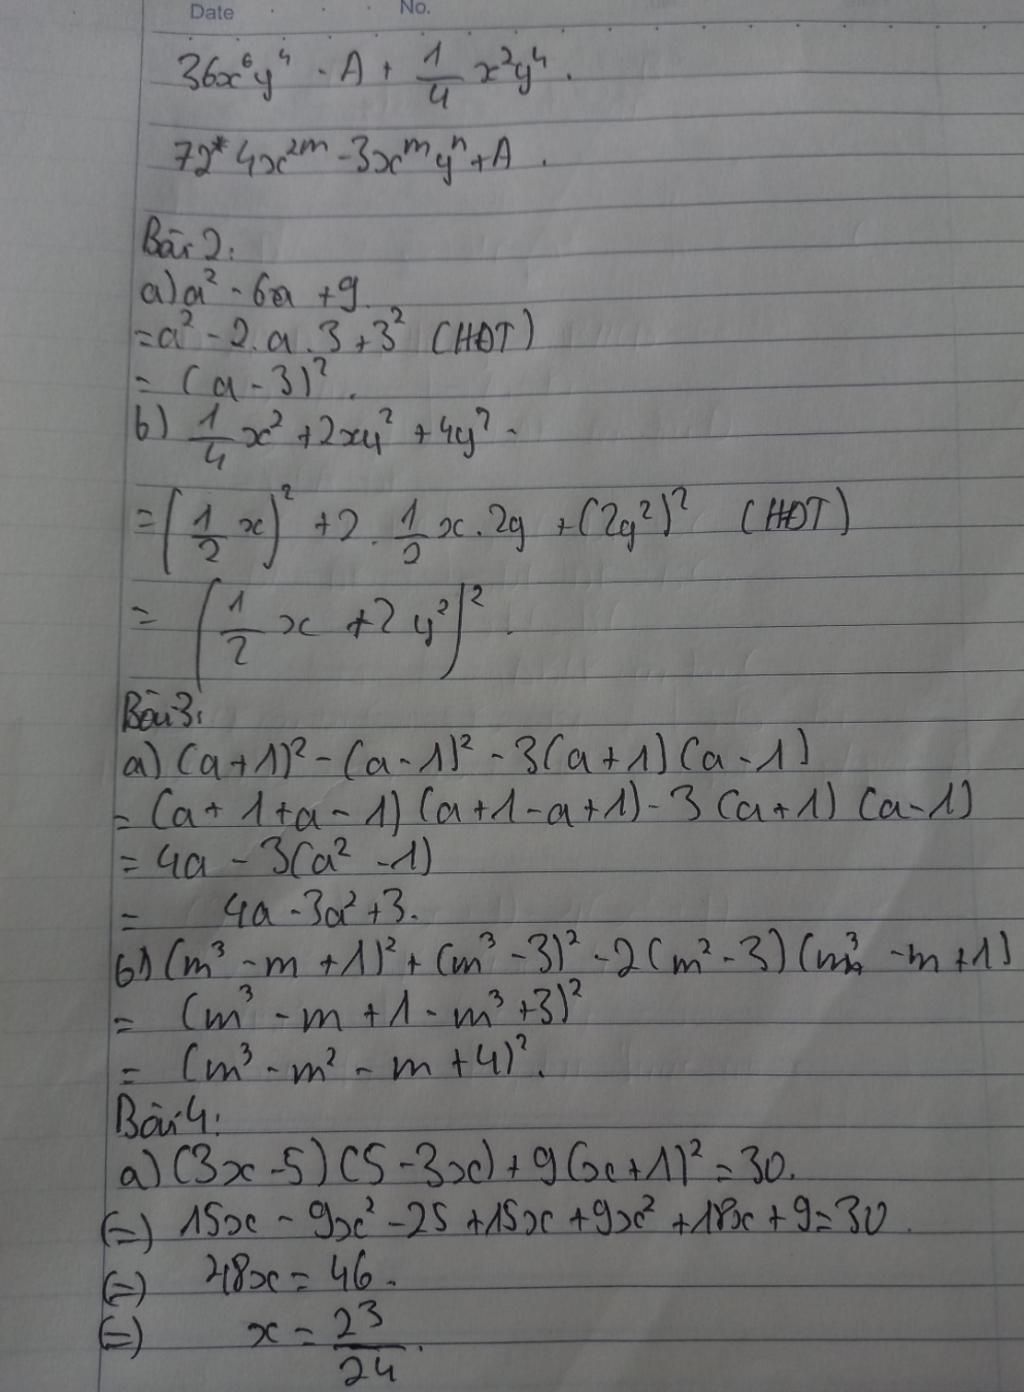 Date No.
36x⁶y⁴ - A + 1/4 x²y⁴.
72* 4x²ᵐ - 3xᵐyⁿ + A.
Bài 2:
a) a² - 6a + 9.
= a² - 2.a.3 + 3² (HĐT)
= (a - 3)².
b) 1/4 x² + 2xy² + 4y² -
= (1/2 x)² + 2. 1/2 x. 2y + (2y²)² (HĐT)
= (1/2 x + 2y²)².
Bài 3:
a) (a + 1)² - (a - 1)² - 3(a + 1)(a - 1)
= (a + 1 + a - 1)(a + 1 - a + 1) - 3(a + 1)(a - 1)
= 4a - 3(a² - 1)
= 4a - 3a² + 3.
b) (m³ - m + 1)² + (m³ - 3)² - 2(m² - 3)(m³ - m + 1)
= (m³ - m + 1 - m³ + 3)²
= (m³ - m² - m + 4)².
Bài 4:
a) (3x - 5)(5 - 3x) + 9(x + 1)² = 30.
(=) 15x - 9x² - 25 + 15x + 9x² + 18x + 9 = 30.
(=) 48x = 46.
(=) x = 23/24.